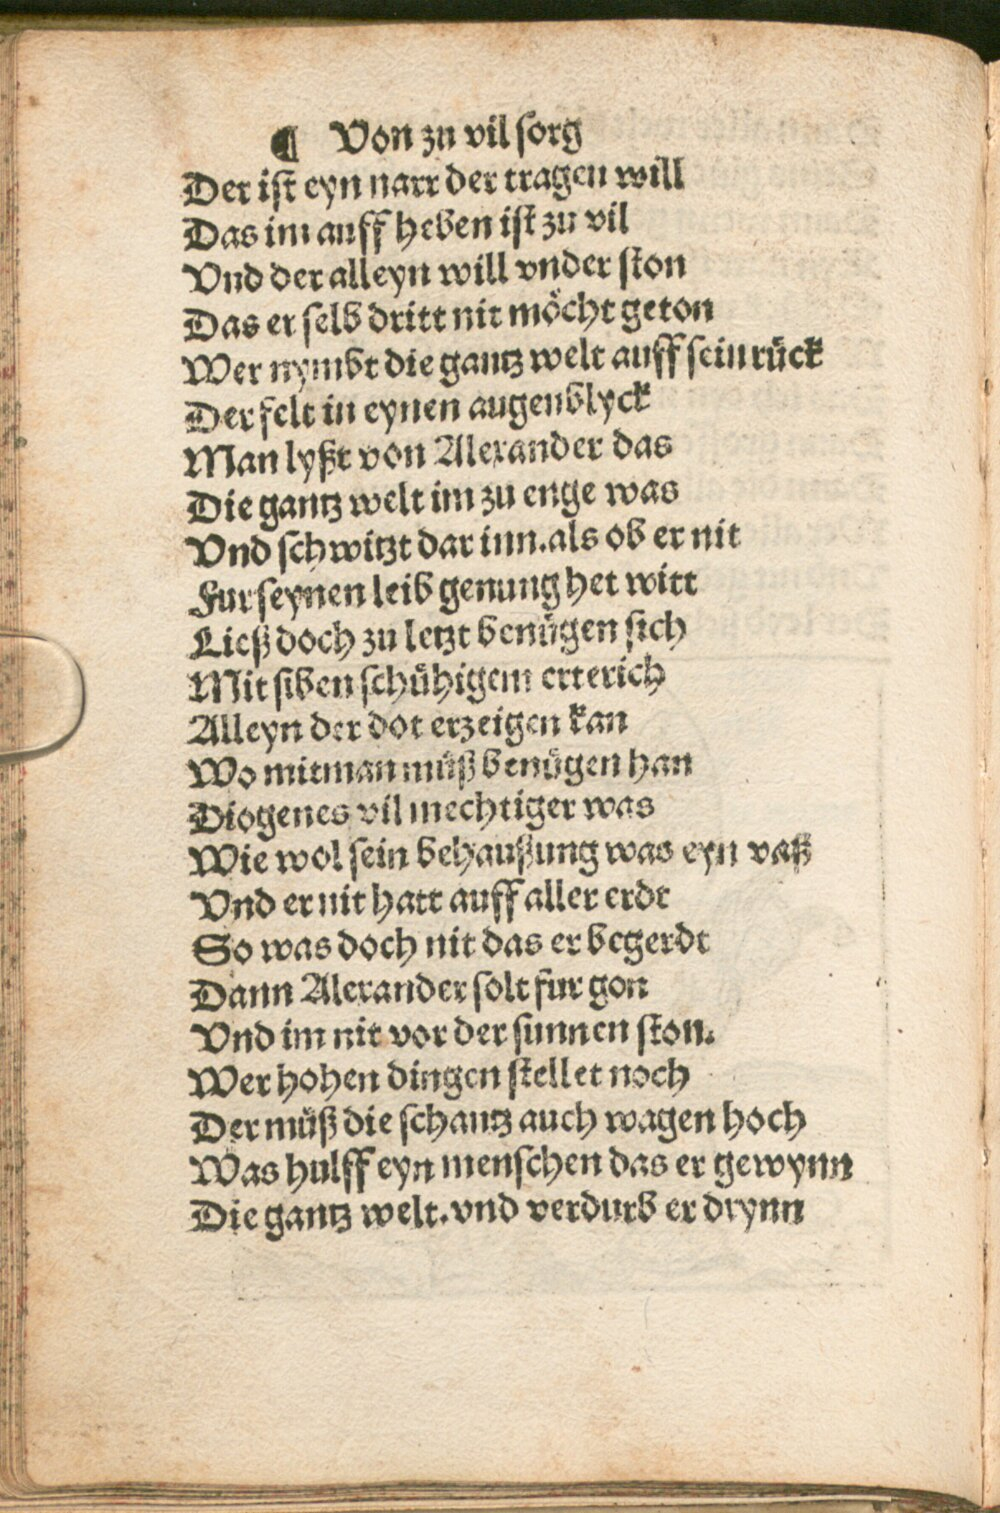 ¶ Von zu vil sorg
Der ist eyn narr der tragen will
Das im auff heben ist zu vil
Vnd der alleyn will vnder ston
Das er selb dritt nit möcht geton
Wer nymbt die gantz welt auff sein rück
Der felt in eynen augenblyck
Man lyßt von Alexander das
Die gantz welt im zu enge was
Vnd schwitzt dar inn. als ob er nit
Fur seynen leib genung het witt
Ließ doch zu letzt benügen sich
Mit siben schühigem erterich
Alleyn der dot erzeigen kan
Wo mit man müß benügen han
Diogenes vil mechtiger was
Wie wol sein behaußung was eyn vaß
Vnd er nit hatt auff aller erdt
So was doch nit das er begerdt
Dann Alexander solt fur gon
Vnd im nit vor der sunnen ston.
Wer hohen dingen stellet noch
Der müß die schantz auch wagen hoch
Was hulff eyn menschen das er gewynn
Die gantz welt. vnd verdurb er drynn